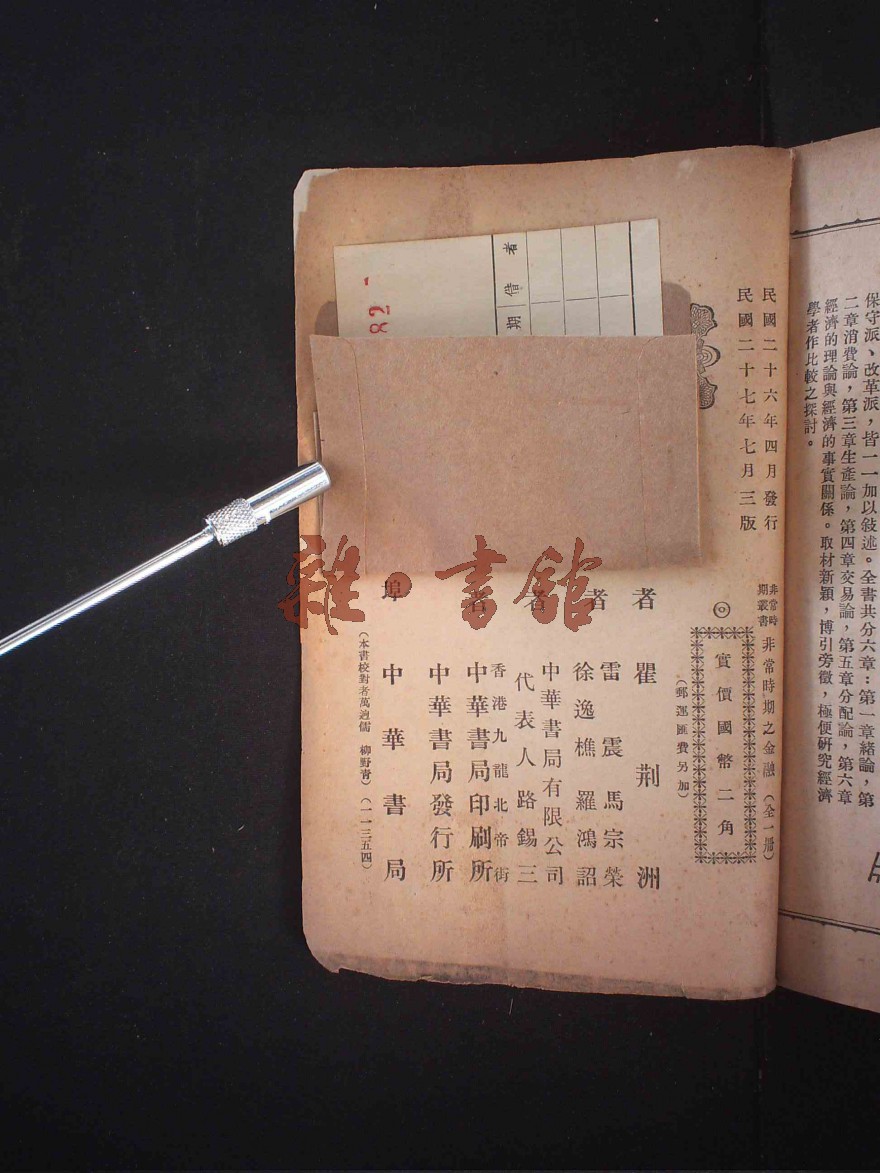 保守派、改革派，皆一一加以敍述。全書共分六章：第一章緒論，第
二章消費論，第三章生產論，第四章交易論，第五章分配論，第六章
經濟的理論與經濟的事實關係。取材新穎，博引旁徵，極便研究經濟
學者作比較之探討。
民國二十六年四月發行
民國二十七年七月三版
非常時
期叢書
非常時期之金融（全一册）
◎
實價國幣二角
（郵運匯費另加）
者 瞿荆洲
者 雷震 馬宗榮
徐逸樵 羅鴻詔
者 中華書局有限公司
代表人路錫三
者 香港九龍北帝街
中華書局印刷所
中華書局發行所
埠 中華書局
（本書校對者萬逈儒 柳野青）（一一三五四）
期 借 者
82
雜·書館